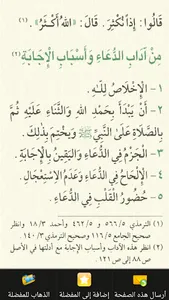 قَالُوا: إِذاً نُكْثِرَ. قَالَ: «اللهُ أَكْثَرُ». (١)
مِنْ آدَابِ الدُّعَاءِ وَأَسْبَابِ الْإِجَابَةِ (٢)
١- الْإِخْلَاصُ لِلَّهِ.
٢- أَنْ يَبْدَأَ بِحَمْدِ اللهِ وَالثَّنَاءِ عَلَيْهِ ثُمَّ
بِالصَّلَاةِ عَلَىٰ النَّبِيِّ ﷺ وَيَخْتِمَ بِذَلِكَ.
٣- الْجَزْمُ فِي الدُّعَاءِ وَالْيَقِينُ بِالْإِجَابَةِ.
٤- الْإِلْحَاحُ فِي الدُّعَاءِ وَعَدَمُ الِاسْتِعْجَالِ.
٥- حُضُورُ الْقَلْبِ فِي الدُّعَاءِ.
(١) الترمذي ٥٦٦/٥ و ٤٦٢/٥ وأحمد ١٨/٣ وانظر
صحيح الجامع ١١٦/٥ وصحيح الترمذي ١٤٠/٣.
(٢) انظر هذه الآداب وأسباب الإجابة مع أدلتها في الأصل
من ص٨٨ إلى ص١٢١.
أرسال هذه الصفحة
إضافة إلى المفضلة
الذهاب للمفضلة